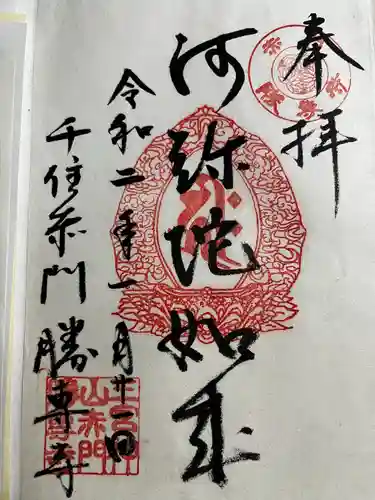 奉拝
阿弥陀如来
令和二年一月廿一日
千住赤門 勝専寺